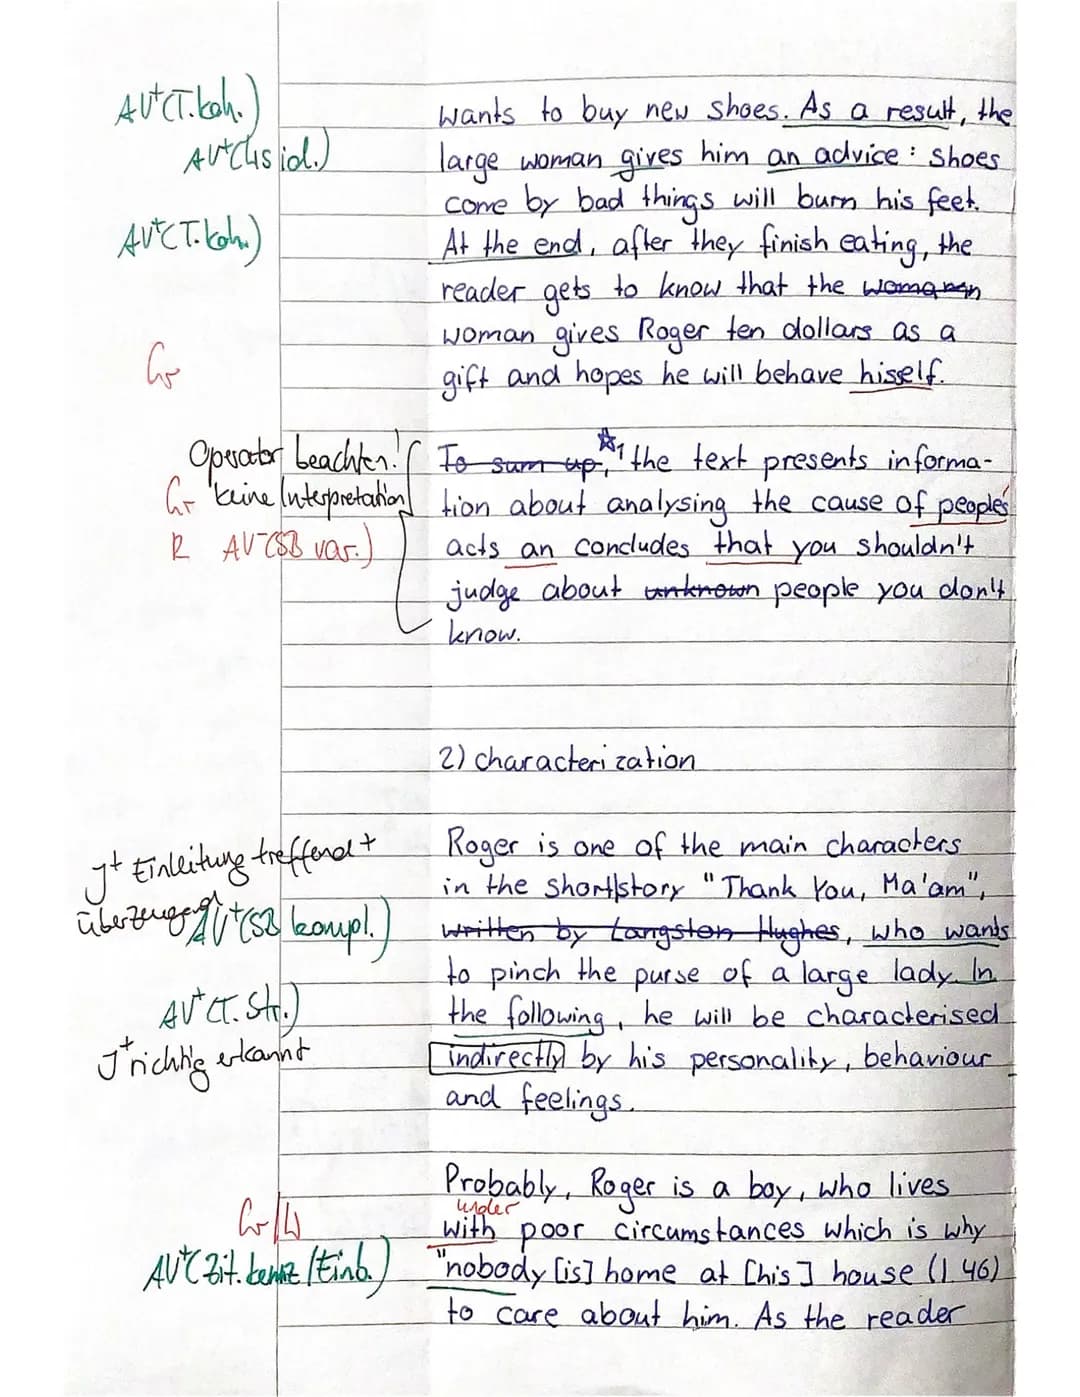 AV⁺(T.koh.)
wants to buy new shoes. As a result, the
AV⁺(
large woman gives him an advice: shoes
come by bad things will burn his feet.
AV⁺(T.koh.)
At the end, after they finish eating, the
reader gets to know that the womanen
woman gives Roger ten dollars as a
Gr
gift and hopes he will behave hisself.
Operator beachten!
To sum up, the text presents informa-
Gr keine Interpretation
tion about analysing the cause of people's
R AV⁻(SB var.)
acts an concludes that you shouldn't
judge about unknown people you don't
know.
2) characterization
J⁺ Einleitung treffend +
Roger is one of the main characters
in the short|story "Thank You, Ma'am",
überzeugend AV⁺(SB kompl.)
written by Langston Hughes, who wants
to pinch the purse of a large lady. In
AV⁺(T. Str.)
the following, he will be characterised
J⁺ richtig erkannt
indirectly by his personality, behaviour
and feelings.
Probably, Roger is a boy, who lives
under
Gr/
with poor circumstances which is why
AV⁺(Zit. kennz/Einb.)
"nobody [is] home at [his] house (l. 46)
to care about him. As the reader